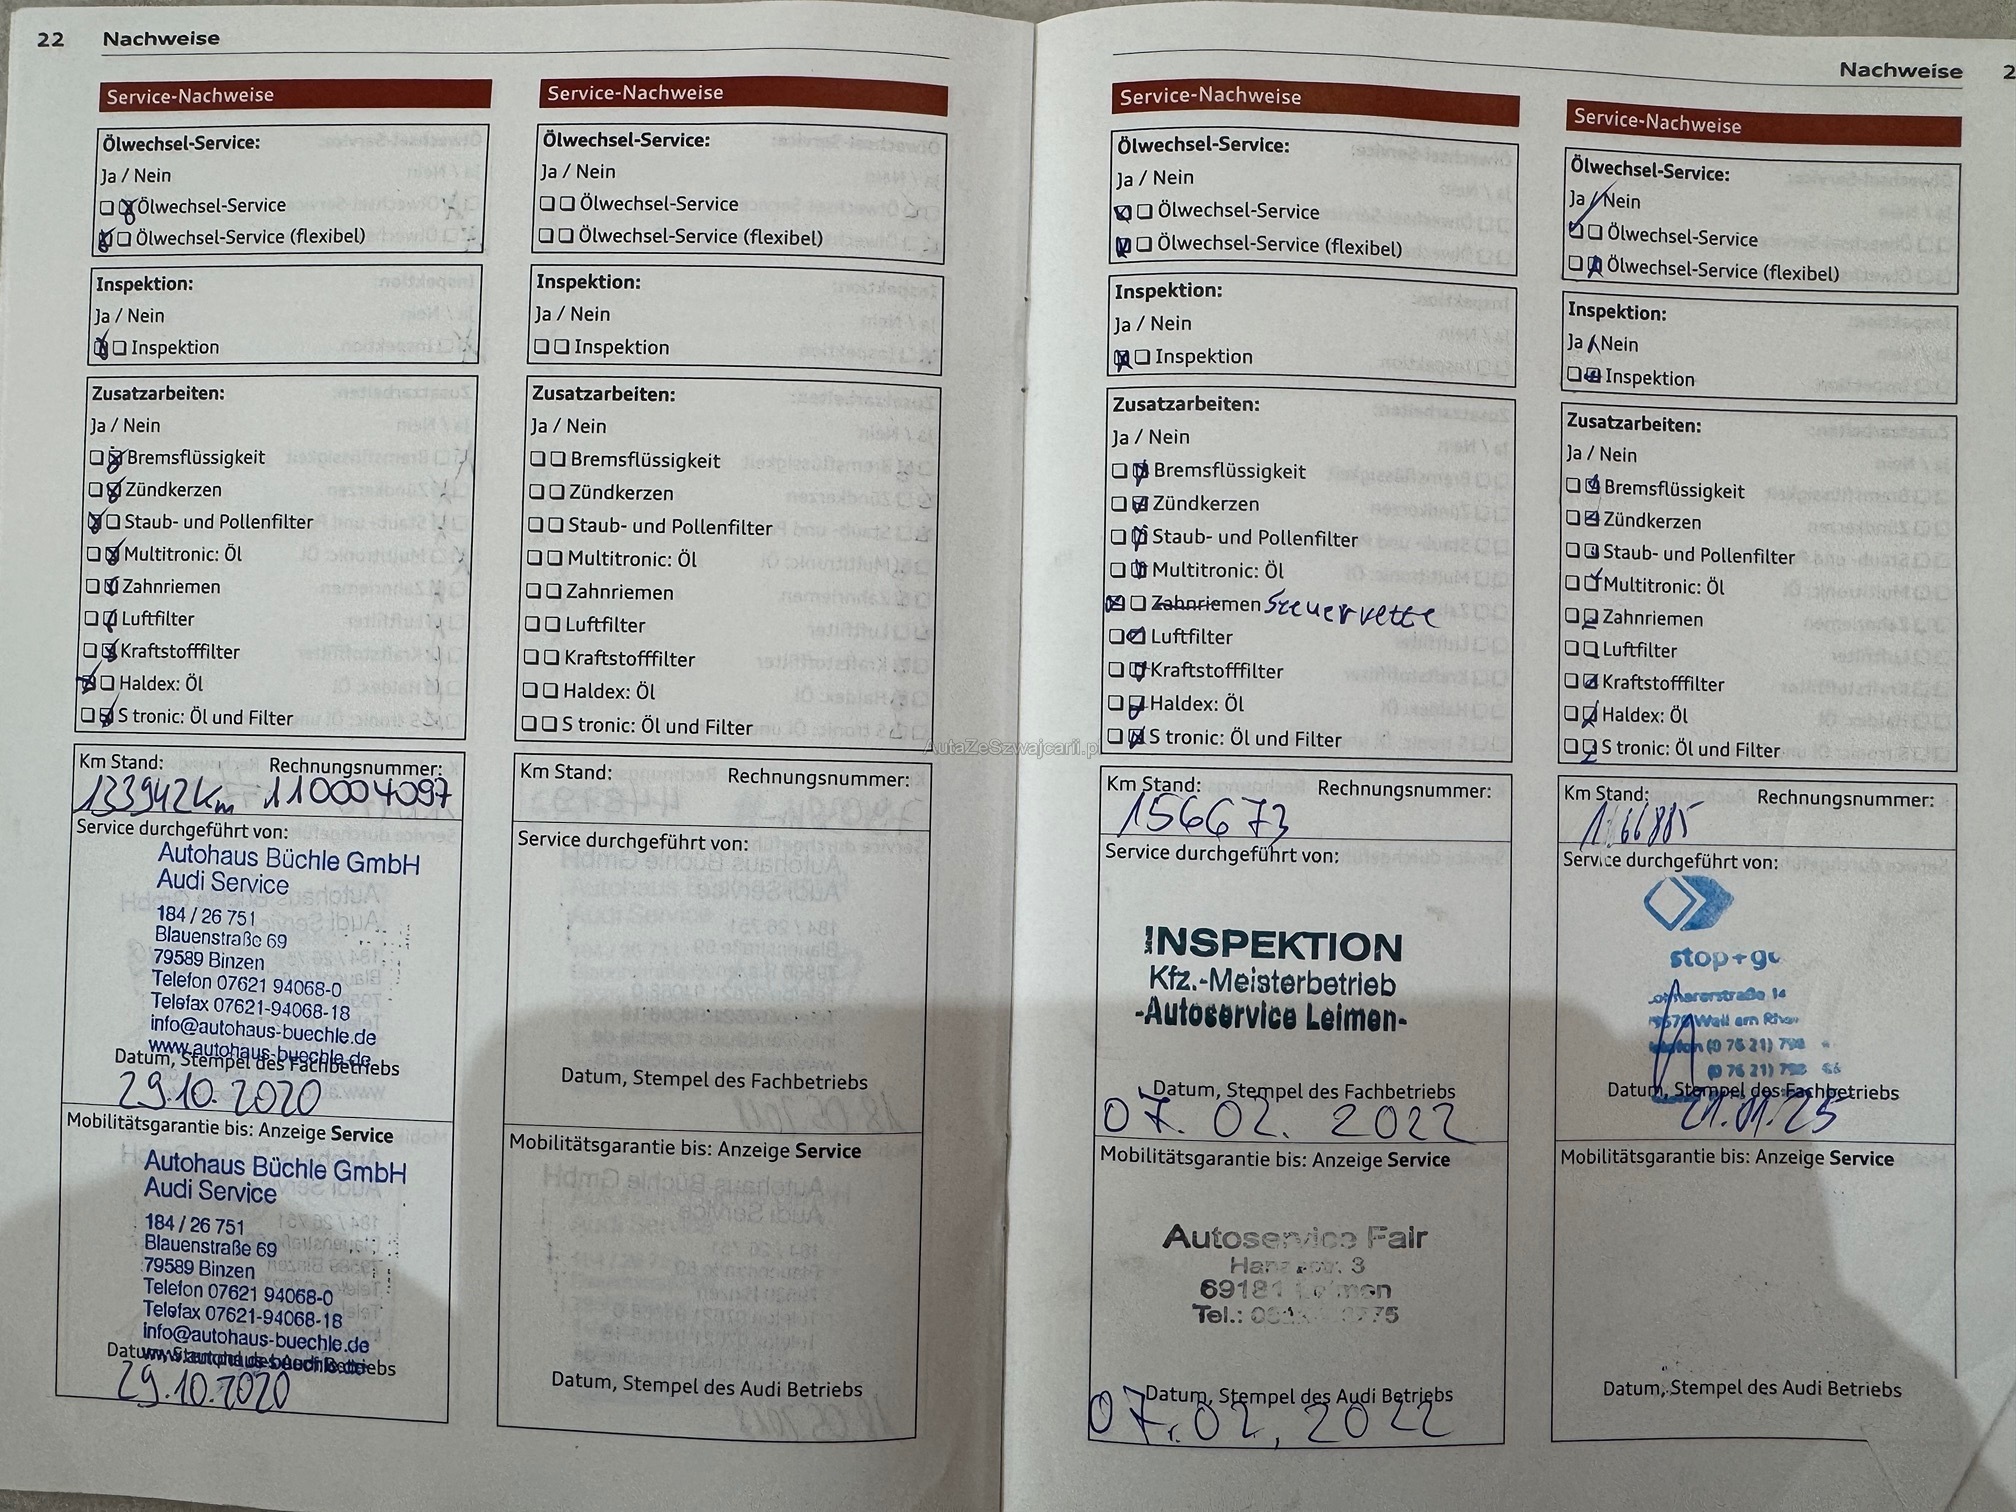 22 Nachweise
Service-Nachweise
Ölwechsel-Service:
Ja / Nein
Ölwechsel-Service
Ölwechsel-Service (flexibel)
Inspektion:
Ja / Nein
Inspektion
Zusatzarbeiten:
Ja / Nein
Bremsflüssigkeit
Zündkerzen
Staub- und Pollenfilter
Multitronic: Öl
Zahnriemen
Luftfilter
Kraftstofffilter
Haldex: Öl
S tronic: Öl und Filter
Km Stand: Rechnungsnummer:
133942km 110004097
Service durchgeführt von:
Autohaus Büchle GmbH
Audi Service
184 / 26 751
Blauenstraße 69
79589 Binzen
Telefon 07621 94068-0
Telefax 07621-94068-18
info@autohaus-buechle.de
www.autohaus-buechle.de
Datum, Stempel des Fachbetriebs
29.10.2020
Mobilitätsgarantie bis: Anzeige Service
Autohaus Büchle GmbH
Audi Service
184 / 26 751
Blauenstraße 69
79589 Binzen
Telefon 07621 94068-0
Telefax 07621-94068-18
info@autohaus-buechle.de
www.autohaus-buechle.de
Datum, Stempel des Audi Betriebs
29.10.2020
Service-Nachweise
Ölwechsel-Service:
Ja / Nein
Ölwechsel-Service
Ölwechsel-Service (flexibel)
Inspektion:
Ja / Nein
Inspektion
Zusatzarbeiten:
Ja / Nein
Bremsflüssigkeit
Zündkerzen
Staub- und Pollenfilter
Multitronic: Öl
Zahnriemen
Luftfilter
Kraftstofffilter
Haldex: Öl
S tronic: Öl und Filter
Km Stand: Rechnungsnummer:
Service durchgeführt von:
Datum, Stempel des Fachbetriebs
Mobilitätsgarantie bis: Anzeige Service
Datum, Stempel des Audi Betriebs
AutaZeSzwajcarii.pl
Nachweise 2
Service-Nachweise
Ölwechsel-Service:
Ja / Nein
Ölwechsel-Service
Ölwechsel-Service (flexibel)
Inspektion:
Ja / Nein
Inspektion
Zusatzarbeiten:
Ja / Nein
Bremsflüssigkeit
Zündkerzen
Staub- und Pollenfilter
Multitronic: Öl
Zahnriemen Steuerkette
Luftfilter
Kraftstofffilter
Haldex: Öl
S tronic: Öl und Filter
Km Stand: Rechnungsnummer:
156673
Service durchgeführt von:
INSPEKTION
Kfz.-Meisterbetrieb
-Autoservice Leimen-
Datum, Stempel des Fachbetriebs
07. 02. 2022
Mobilitätsgarantie bis: Anzeige Service
Autoservice Fair
3
69181 Leimen
Tel.:
Datum, Stempel des Audi Betriebs
07. 02. 2022
Service-Nachweise
Ölwechsel-Service:
Ja / Nein
Ölwechsel-Service
Ölwechsel-Service (flexibel)
Inspektion:
Ja / Nein
Inspektion
Zusatzarbeiten:
Ja / Nein
Bremsflüssigkeit
Zündkerzen
Staub- und Pollenfilter
Multitronic: Öl
Zahnriemen
Luftfilter
Kraftstofffilter
Haldex: Öl
S tronic: Öl und Filter
Km Stand: Rechnungsnummer:
Service durchgeführt von:
stop+go
14
Weil am
(0 76 21)
(0 76 21)
Datum, Stempel des Fachbetriebs
21.01.25
Mobilitätsgarantie bis: Anzeige Service
Datum, Stempel des Audi Betriebs